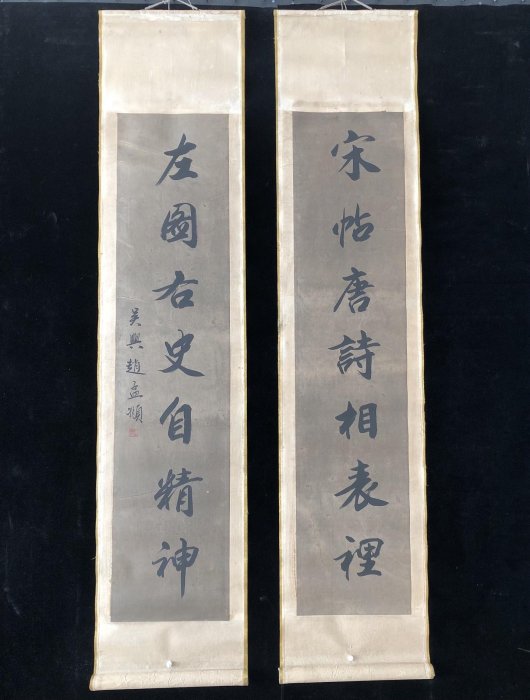 宋帖唐詩相表裡
左圖右史自精神
吳興趙孟頫